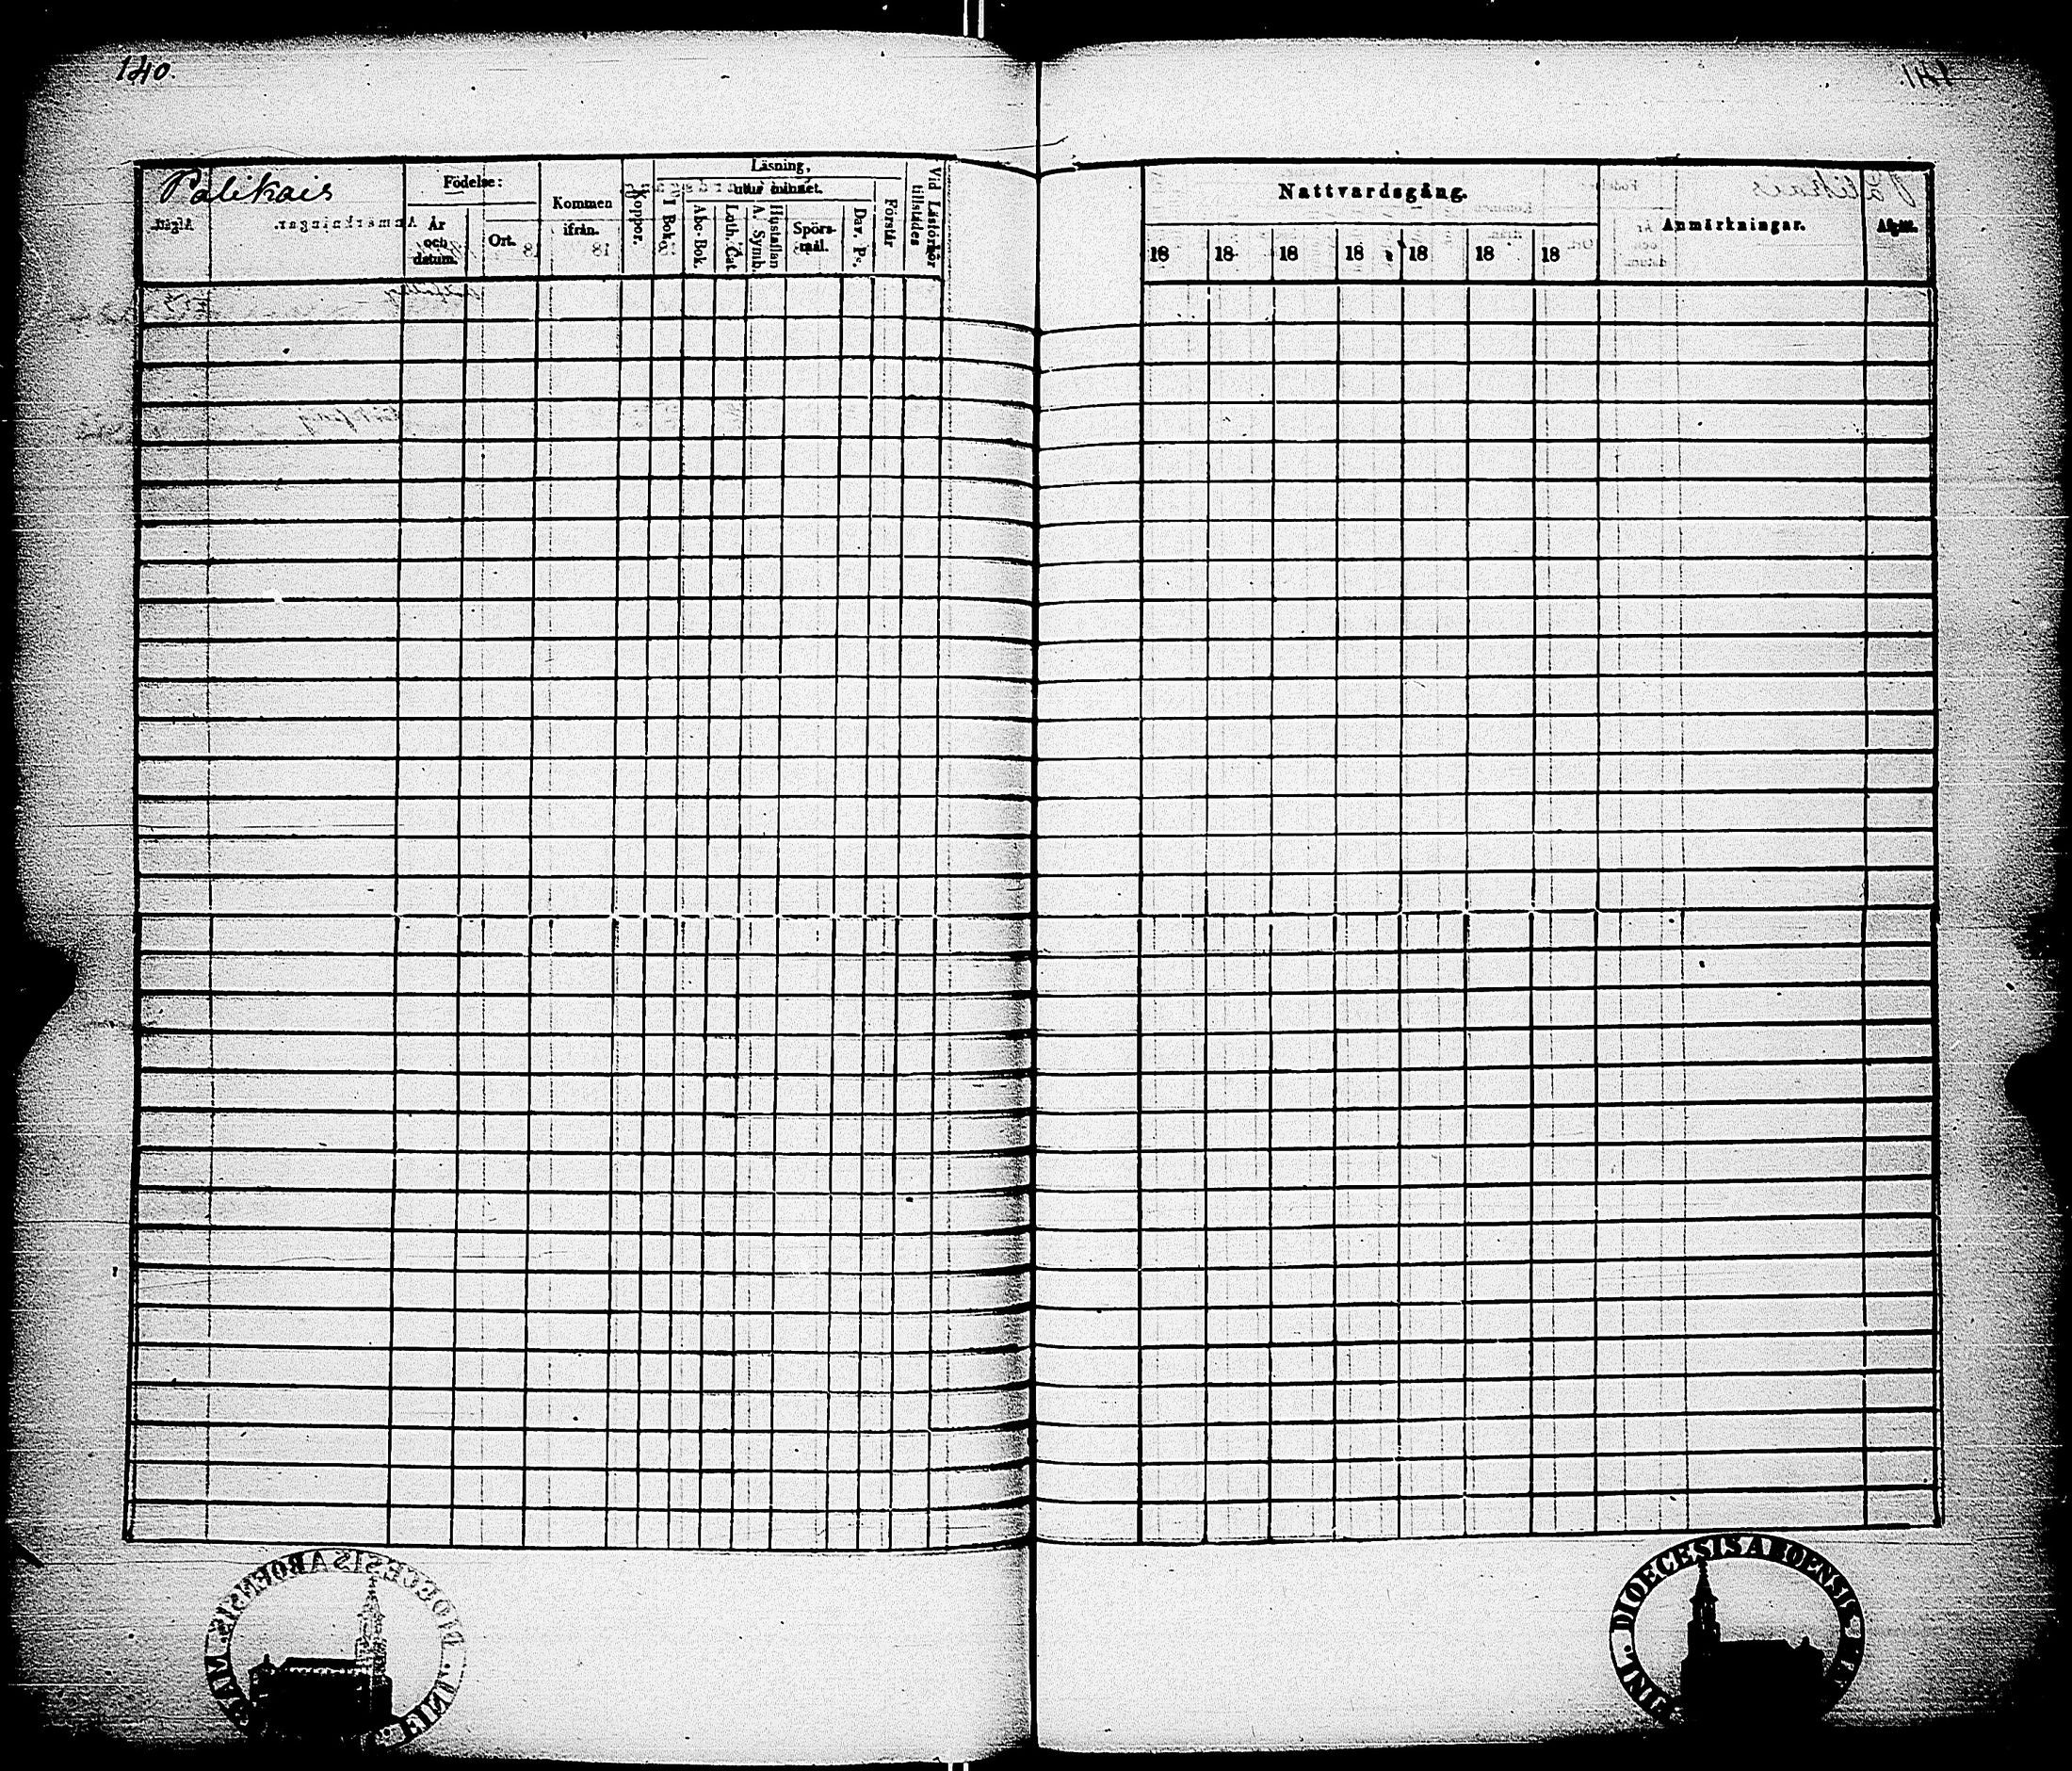 140.
Palikais
Födelse:
År och datum.
Ort.
Kommen ifrån.
Koppor.
Läsning,
I Bok.
utur minnet.
Abc-Bok.
Luth. Cat.
A. Symb.
Hustaflan
Spörs-mål.
Dav. Ps.
Förstår
Vid Läsförhör tillstädes
141.
Nattvardsgång.
18 18 18 18 18 18 18
Anmärkningar.
Afgått.
DIOECESIS ABOENSIS